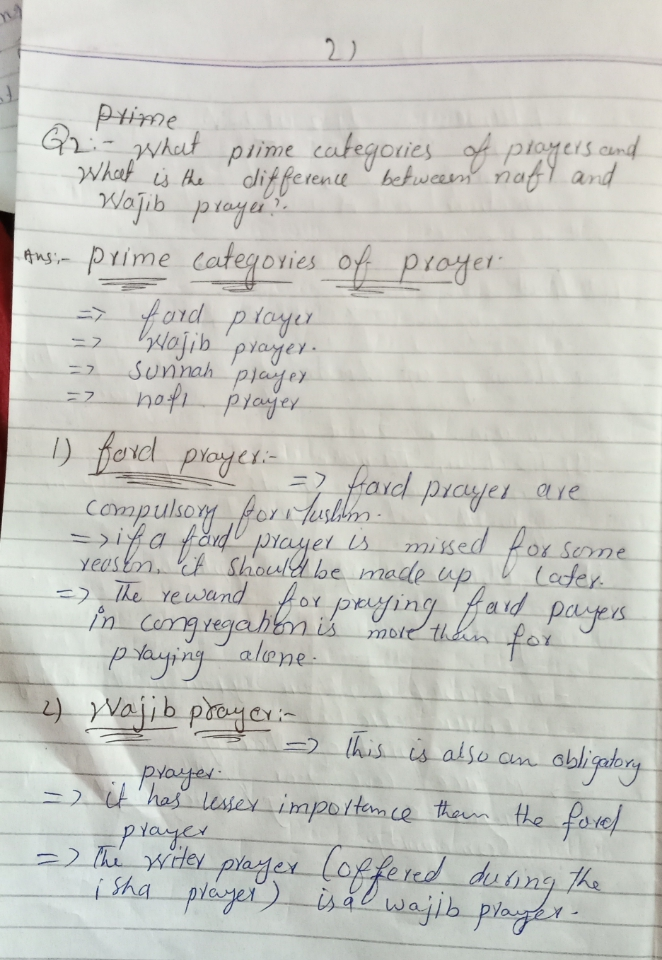 2)
Prime
Q2:- What prime categories of prayers and
What is the difference between nafl and
Wajib prayer?.
Ans:- prime categories of prayer.
=> fard prayer
=> Wajib prayer.
=> Sunnah prayer
=> nafl prayer
1) fard prayer:-
=> fard prayer are
compulsory for Muslim.
=> if a fard prayer is missed for some
reason, it should be made up later.
=> The rewand for praying fard payers
in congregation is more than for
praying alone.
2) Wajib prayer:-
=> This is also an obligatory
prayer.
=> it has lesser importance than the fard
prayer
=> The witer prayer (offered during the
isha prayer) is a wajib prayer.